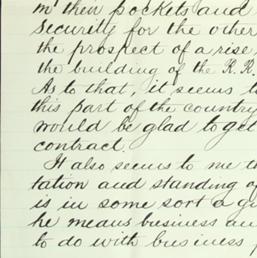 in their pockets and
security for the other
the prospect of a rise,
the building of the R.R.
As to that, it seems t
this part of the country
would be glad to get
contract.
It also seems to me th
tation and standing of
is in some sort a gu
he means business an
to do with business